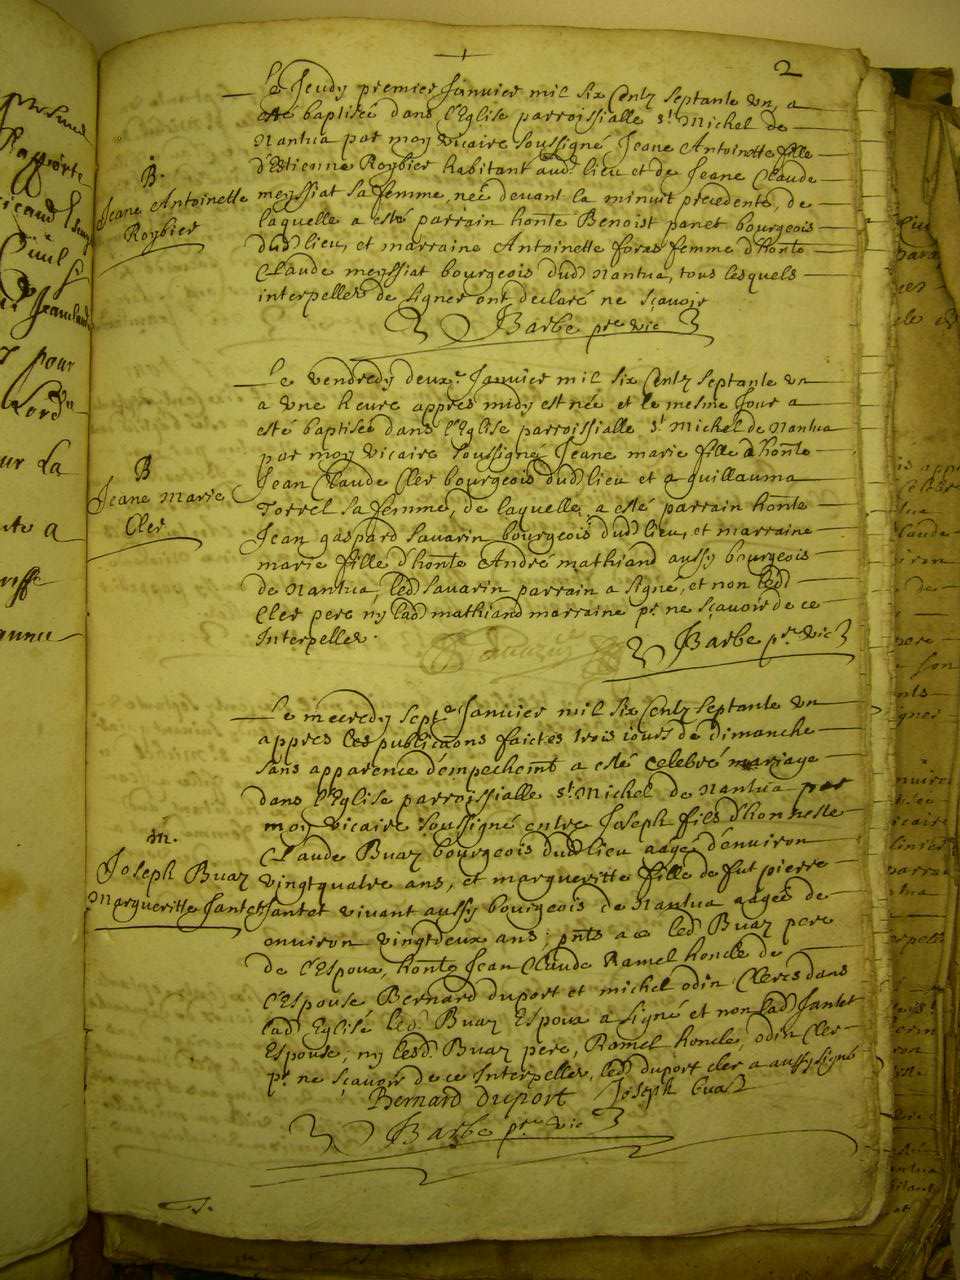 2
Le Jeudy premier Janvier mil six Centz septante un, a
esté baptisée dans l'Eglise parroissialle St Michel de
Nantua par moy vicaire soussigné, Jeane Antoinette fille
d'Estienne Roybier habitant aud. lieu et de Jeane Claude
meyssiat sa femme, née devant la minuit precedente, de
laquelle a esté parrain honte Benoist panet bourgeois
dud. lieu, et marraine Antoinette foras femme d'honte
Claude meyssiat bourgeois dud. Nantua, tous lesquels
interpellez de signer ont declaré ne sçavoir
Barbe pre vic
B.
Jeane Antoinette
Roybier
Le vendredy deuxe Janvier mil six Centz septante un
a une heure appres midy est née et le mesme Jour a
esté baptisée dans l'Eglise parroissialle St Michel de Nantua
par moy vicaire soussigné Jeane marie fille d'honte
Jean Claude Cler bourgeois dud. lieu et a guillauma
Torrel sa femme, de laquelle a esté parrain honte
Jean gaspard savarin bourgeois dud. lieu, et marraine
marie fille d'honte André mathiand aussy bourgeois
de Nantua, led. savarin parrain a signé, et non led.
Cler pere ny lad. mathiand marraine pr ne sçavoir de ce
Interpellez.
Barbe pre vic
B
Jeane Marie
Cler
Le mecredy septe Janvier mil six Centz septante un
appres les publicaons faictes trois iours de dimanche
sans apparence d'empechemt a esté celebré mariage
dans l'Eglise parroissialle St Michel de Nantua par
moy vicaire soussigné entre Joseph fils d'honneste
Claude Buaz bourgeois dud. lieu aagé d'environ
vingtquatre ans, et margueritte fille de fut pierre
Jantet vivant aussy bourgeois de Nantua aagée de
environ vingtdeux ans; pnts a ce led. Buaz pere
de l'Espoux, honte Jean Claude Ramel honcle de
l'Espouse Bernard duport et michel odin Clercs dans
lad. Eglise led. Buaz Espoux a signé et non lad. Jantet
Espouse, ny lesd. Buaz pere, Ramel honcle, odin Cler
pr ne sçavoir de ce Interpellez, led. duport cler a aussy signé
Bernard duport Joseph buaz
Barbe pre vic
m.
Joseph Buaz
Margueritte Jantet